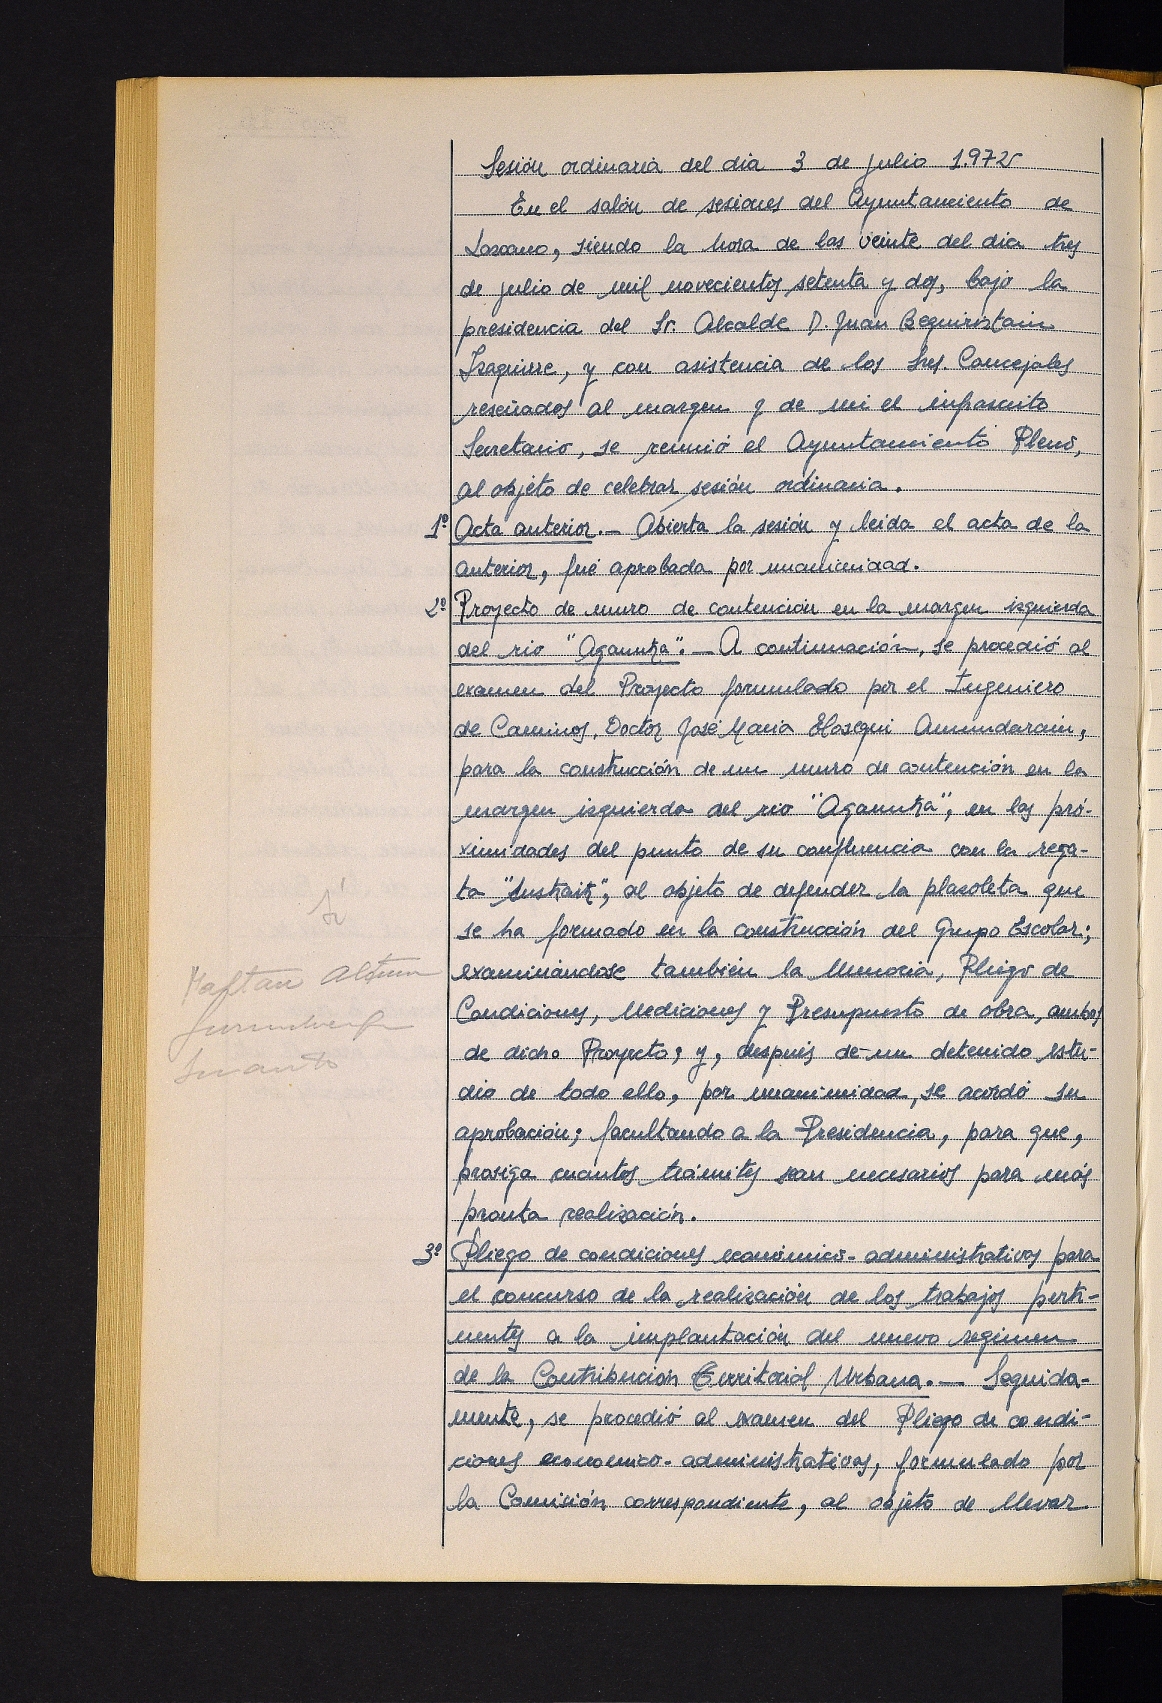 Sesión ordinaria del dia 3 de julio 1.972
En el salón de sesiones del Ayuntamiento de
Lazcano, siendo la hora de las veinte del dia tres
de julio de mil novecientos setenta y dos, bajo la
presidencia del Sr. Alcalde D. Juan Beguiristain
Izaguirre, y con asistencia de los Sres. Concejales
reseñados al margen y de mi el infrascrito
Secretario, se reunió el Ayuntamiento Pleno,
al objeto de celebrar sesión ordinaria.
1º Acta anterior.- Abierta la sesión y leida el acta de la
anterior, fué aprobada por unanimidad.
2º Proyecto de muro de contención en la margen izquierda
del rio "Agauntza".- A continuación, se procedió al
examen del Proyecto formulado por el Ingeniero
de Caminos, Doctor José Maria Elosegui Amundarain,
para la construcción de un muro de contención en la
margen izquierda del rio "Agauntza", en las pró-
ximidades del punto de su confluencia con la rega-
ta , al objeto de defender la plazoleta que
se ha formado en la construcción del Grupo Escolar;
examinándose también la Memoria, Pliego de
Condiciones, Mediciones y Presupuesto de obra, ambos
de dicho Proyecto; y, después de un detenido estu-
dio de todo ello, por unanimidad, se acordó su
aprobación; facultando a la Presidencia, para que,
prosiga cuantos trámites sean necesarios para más
pronta realización.
3º Pliego de condiciones económico-administrativas para
el concurso de la realización de los trabajos perti-
nentes a la implantación del nuevo regimen
de la Contribución Territorial Urbana.- Seguida-
mente, se procedió al examen del Pliego de condi-
ciones economico-administrativas, formulado por
la Comisión correspondiente, al objeto de llevar